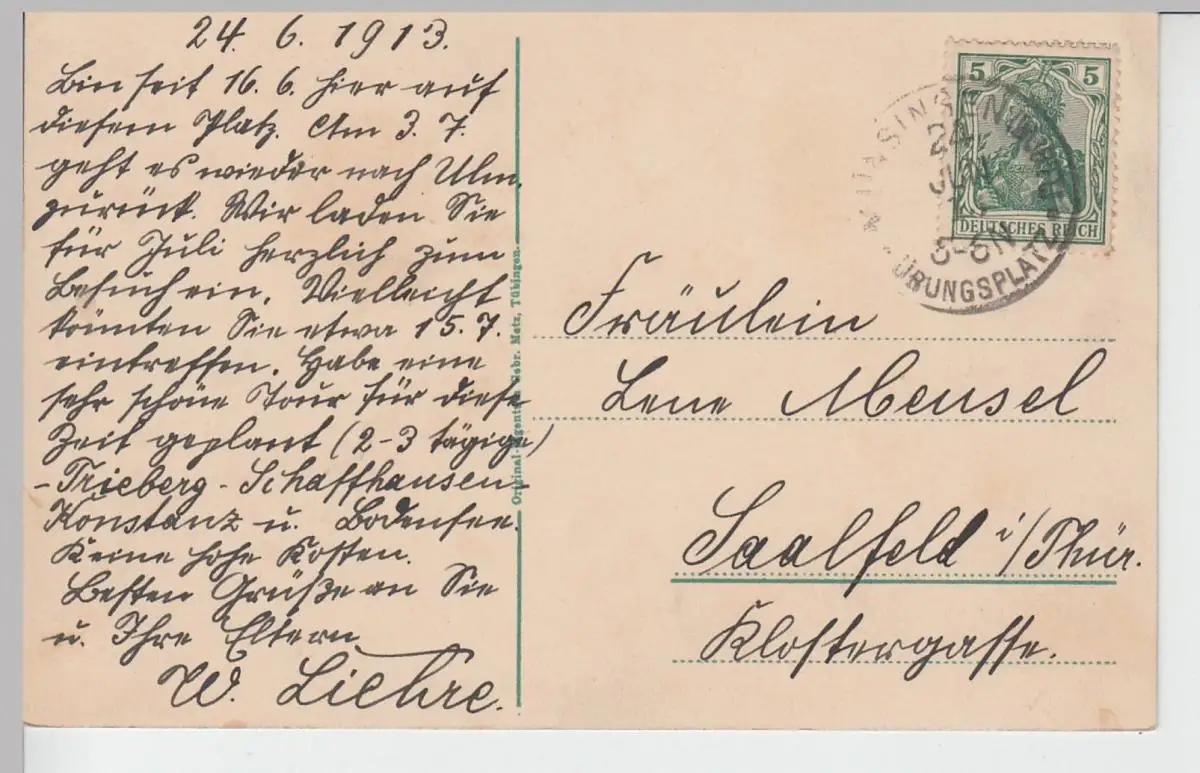 24. 6. 1913.
Bin seit 16. 6. hier auf
diesem Platz. Am 3. 7.
geht es wieder nach Ulm
zurück. Wir laden Sie
für Juli herzlich zum
Besuch ein. Vielleicht
könnten Sie etwa 15. 7.
eintreffen. Habe eine
sehr schöne Tour für diese
Zeit geplant (2-3 tägige)
- Trieberg - Schaffhausen -
Konstanz u. Bodensee.
Keine hohe Kosten.
Besten Grüße an Sie
u. Ihre Eltern
W. Liehre.
Gebr. Metz, Tübingen.
5 5
DEUTSCHES REICH
MÜNSINGEN
24
JUN
5-6N
ÜBUNGSPLATZ
Fräulein
Lene Meusel
Saalfeld i/Thür.
Klostergasse.